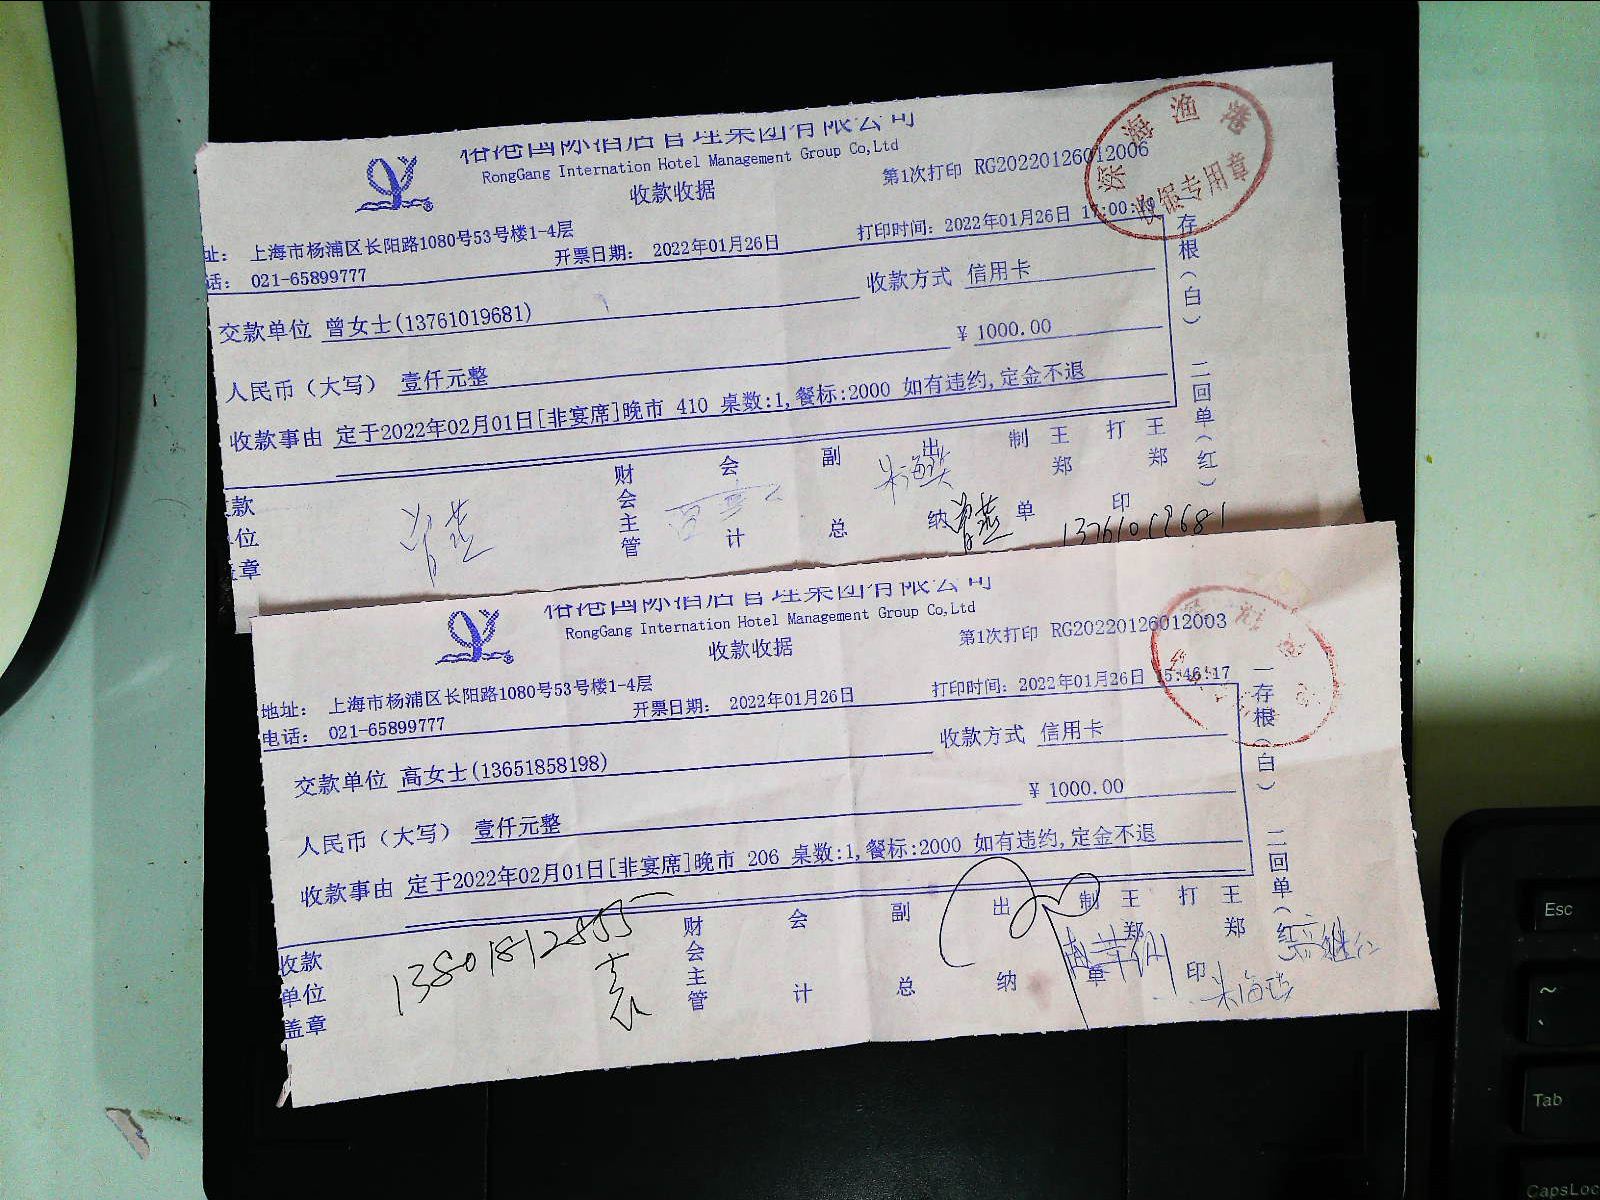 港国际酒店管理集团有限公司
RongGang Internation Hotel Management Group Co,Ltd
收款收据
第1次打印 RG20220126012006
深海渔港
专用章
址： 上海市杨浦区长阳路1080号53号楼1-4层
话： 021-65899777
开票日期： 2022年01月26日
打印时间：2022年01月26日 17:00:
收款方式 信用卡
交款单位 曾女士(13761019681)
人民币（大写） 壹仟元整
¥ 1000.00
收款事由 定于2022年02月01日[非宴席]晚市 410 桌数:1,餐标:2000 如有违约,定金不退
款
位
章
财会主管
会计
副总
出纳
制单
王郑
打印
王郑
一存根(白) 二回单(红)
曾燕
曾燕
13761019681
港国际酒店管理集团有限公司
RongGang Internation Hotel Management Group Co,Ltd
收款收据
第1次打印 RG20220126012003
地址： 上海市杨浦区长阳路1080号53号楼1-4层
电话： 021-65899777
开票日期： 2022年01月26日
打印时间：2022年01月26日 15:46:17
收款方式 信用卡
交款单位 高女士(13651858198)
人民币（大写） 壹仟元整
¥ 1000.00
收款事由 定于2022年02月01日[非宴席]晚市 206 桌数:1,餐标:2000 如有违约,定金不退
收款
单位
盖章
13801812855
袁
财会主管
会计
副总
出纳
制单
王郑
打印
王郑
一存根(白) 二回单(红)
Esc
~
`
Tab
CapsLoc